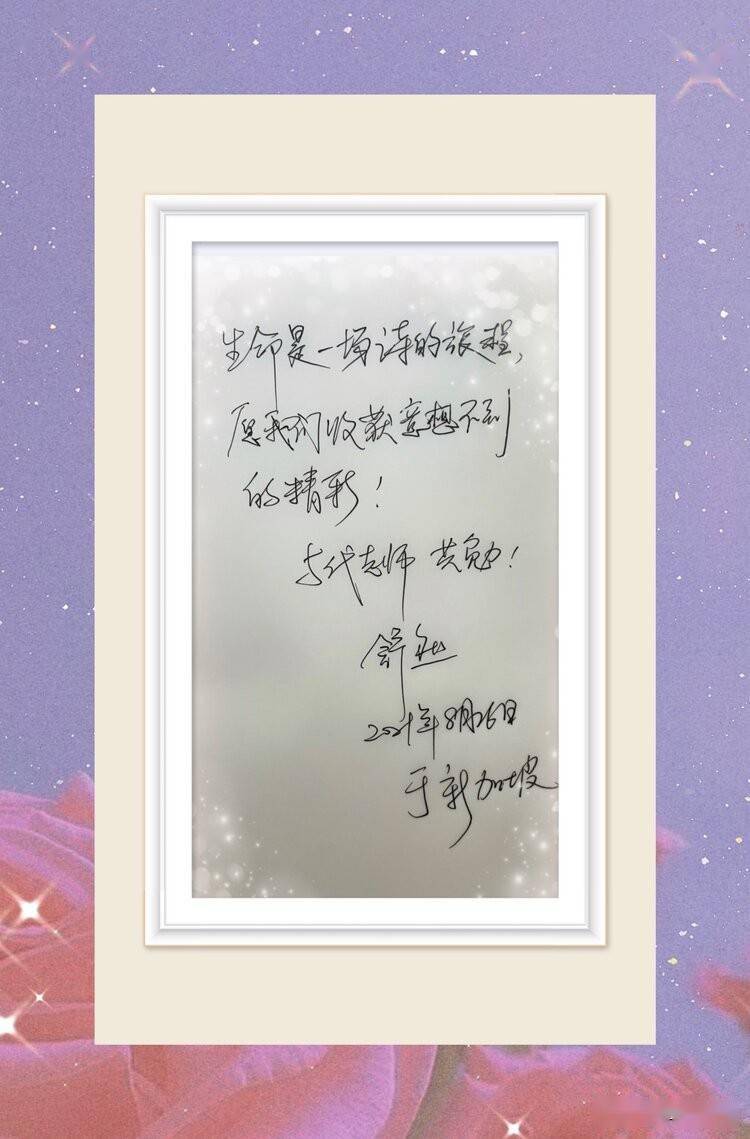 生命是一场诗的旅程，
愿我们收获意想不到
的精彩！
与代老师 共勉！
舒然
2021年8月26日
于新加坡